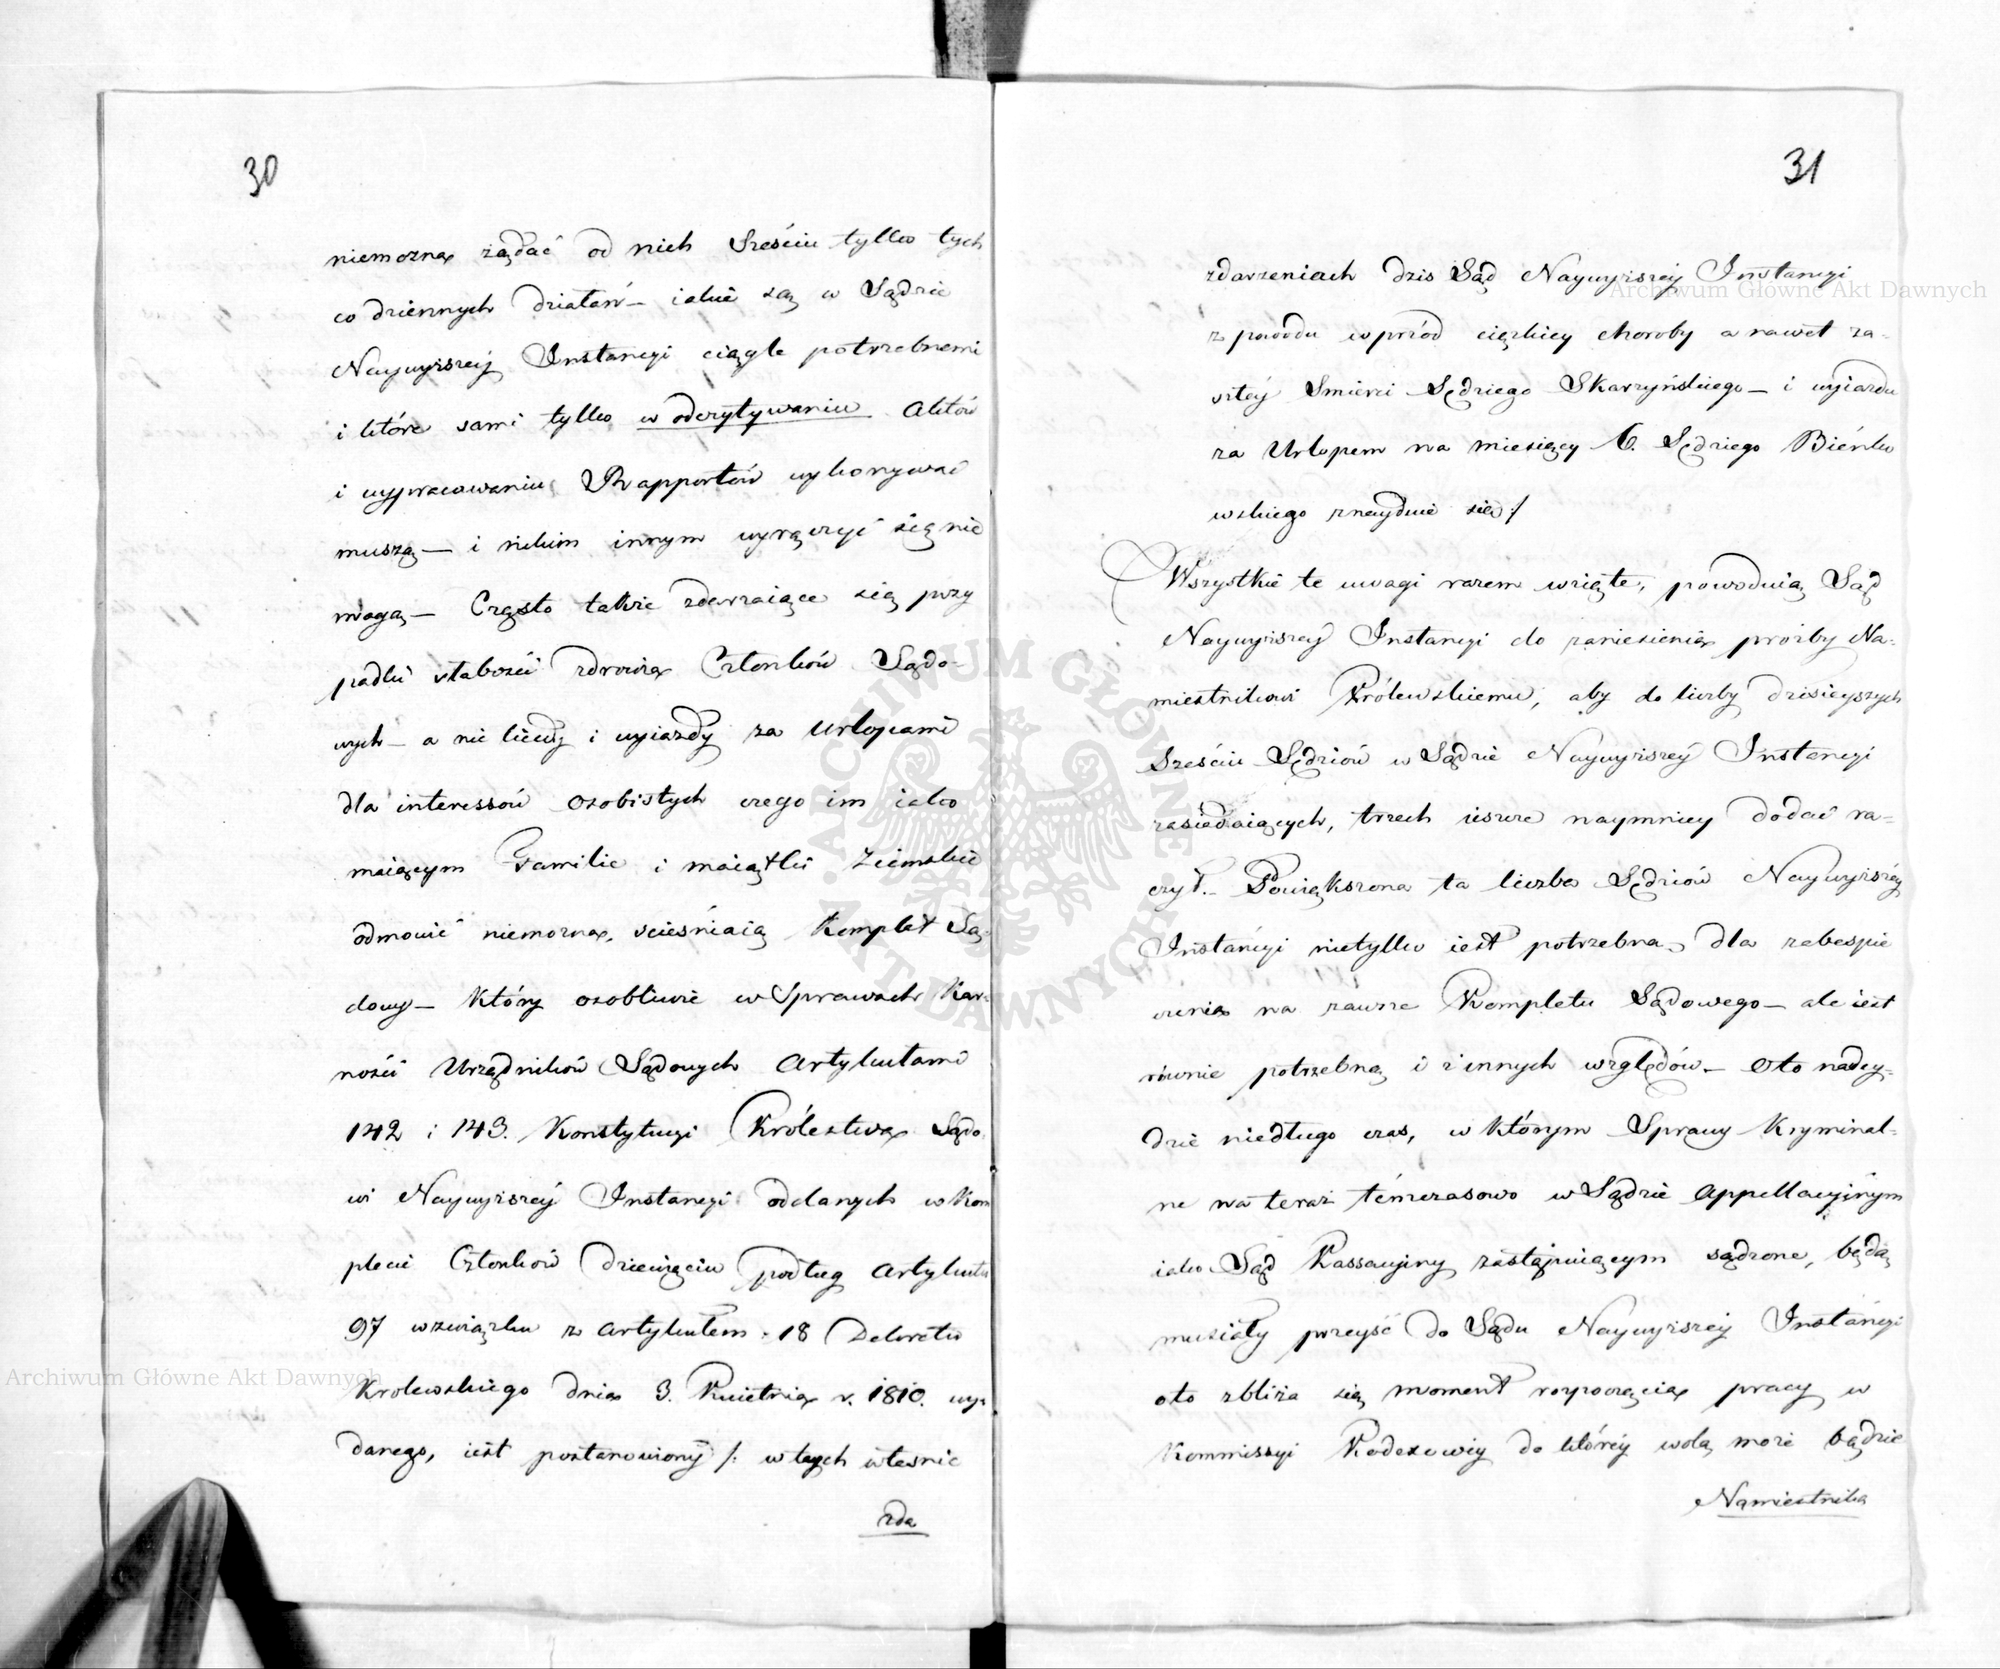 30
niemozna żądać od nich Sześciu tylko tych
co dziennych działań — iakie są w Sądzie
Naywyższey Instancyi ciągle potrzebnemi
i które sami tylko w odczytywaniu Aktów
i wypracowaniu Rapportów wykonywać
muszą — i nikim innym wyręczyć się nie
mogą — Często także zdarzaiące się przy
padki słabości zdrowia Członków Sądo-
wych — a nie kiedy i wyiazdy za Urlopami
dla interessów osobistych czego im iako
maiącym Familie i maiątki Ziemskie
odmowić niemozna, scieśniaią Komplet Są-
dowy — który osobliwie w Sprawach Kar-
ności Urzędników Sądowych Artykułami
142 i 143. Konstytucyi Królestwa Sądo
wi Naywyższey Instancyi oddanych w Kom
plecie Członków dziewięciu podług Artykułu
97 w związku z Artykułem 18 Dekretu
Krolewskiego dnia 3. Kwietnia r. 1810. wy-
danego, iest postanowiony /: w tych właśnie
zda
31
zdarzeniach dzis Sąd Naywyższey Instancyi
z powodu wprzód cięzkiey choroby a nawet za-
szłey Smierci Sędziego Skarzyńskiego — i wyiazdu
za Urlopem na miesięcy 6. Sędziego Bieńko
wskiego znayduie się :/
Wszystkie te uwagi razem wzięte, powoduią Sąd
Naywyższey Instancyi do zaniesienia prozby Na-
miestnikowi Królewskiemu, aby do liczby dzisieyszych
Sześciu Sędziów w Sądzie Naywyższey Instancyi
zasiadaiących, trzech ieszcze naymniey dodać ra-
czył. — Powiększona ta liczba Sędziów Naywyższey
Instancyi nietylko iest potrzebna dla zabespie
czenia na zawsze Kompletu Sądowego — ale iest
równie potrzebną i z innych względów — Oto nadey-
dzie niedługo czas, w którym Sprawy Kryminal-
ne na teraz témczasowo w Sądzie Appellacyinym
iako Sąd Kassacyiny zastępuiącym sądzone, będą
musiały przeyść do Sądu Naywyższey Instancyi
oto zbliża się moment rozpoczęcia pracy w
Kommissyi Kodexowey do któréy wolą może będzie
Namiestnika
Archiwum Główne Akt Dawnych
Archiwum Główne Akt Dawnych
ARCHIWUM GŁÓWNE · AKT DAWNYCH ·